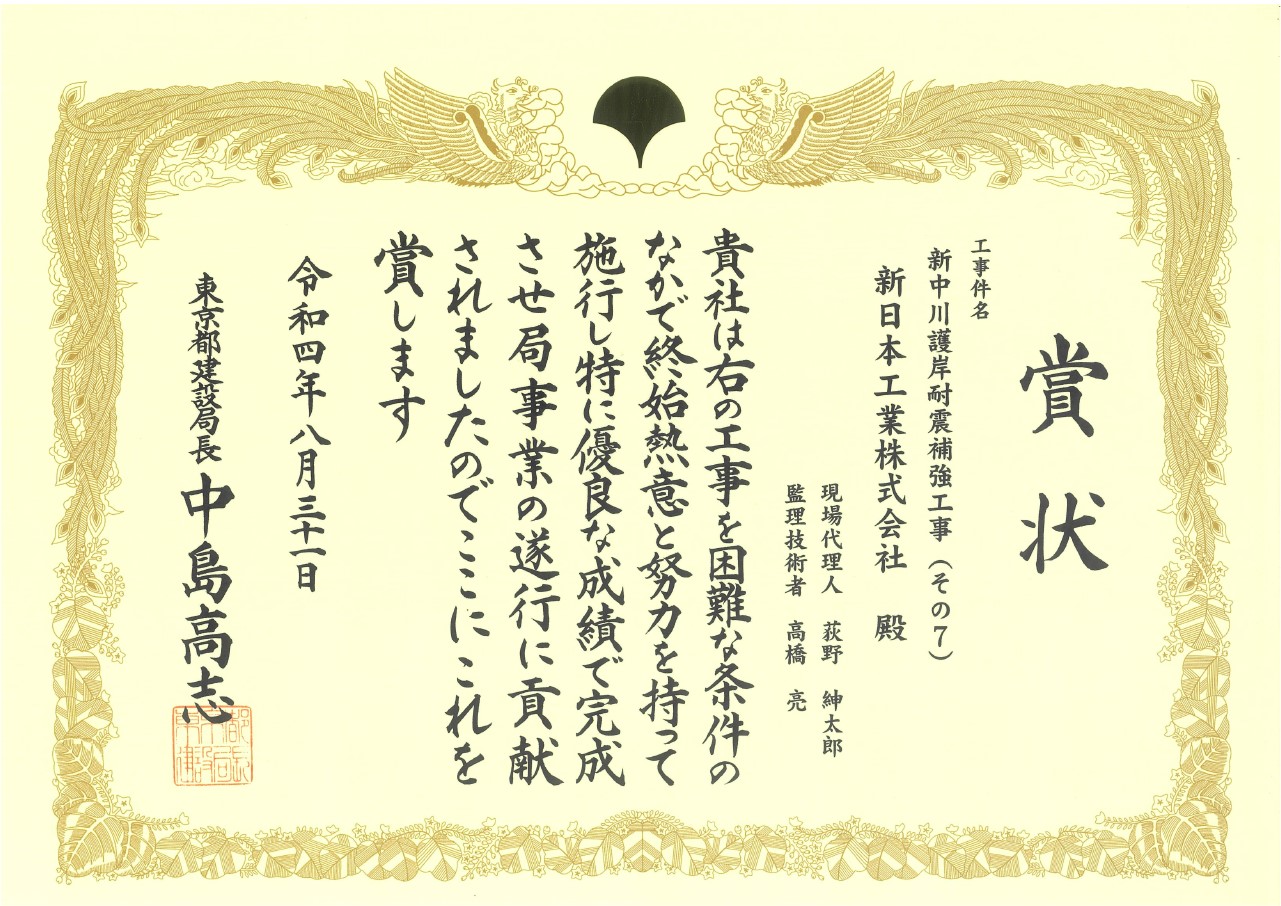 賞状
工事件名
新中川護岸耐震補強工事（その7）
新日本工業株式会社 殿
現場代理人 荻野 紳太郎
監理技術者 高橋 亮
貴社は右の工事を困難な条件の
なかで終始熱意と努力を持って
施行し特に優良な成績で完成
させ局事業の遂行に貢献
されましたのでここにこれを
賞します
令和四年八月三十一日
東京都建設局長 中島高志
東京都
建設局長